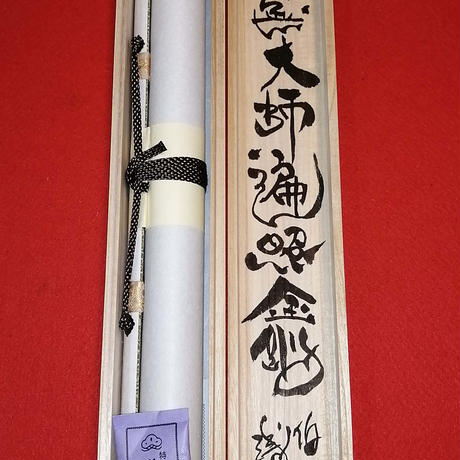 無大師遍照金剛
特